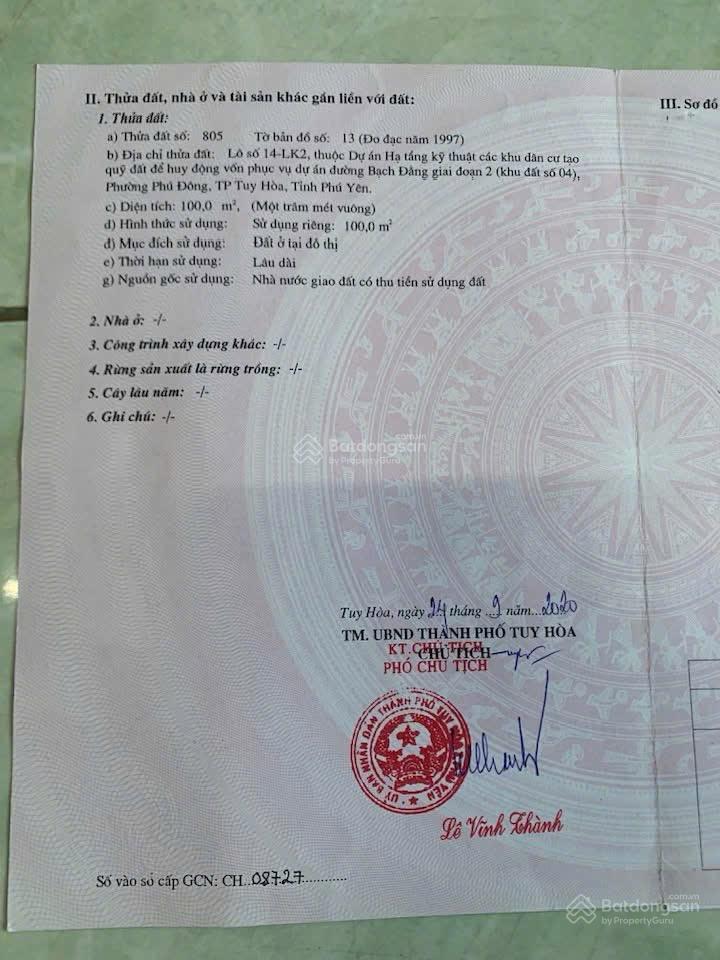 II. Thửa đất, nhà ở và tài sản khác gắn liền với đất:
III. Sơ đồ
1. Thửa đất:
a) Thửa đất số: 805 Tờ bản đồ số: 13 (Đo đạc năm 1997)
b) Địa chỉ thửa đất: Lô số 14-LK2, thuộc Dự án Hạ tầng kỹ thuật các khu dân cư tạo
quỹ đất để huy động vốn phục vụ dự án đường Bạch Đằng giai đoạn 2 (khu đất số 04),
Phường Phú Đông, TP Tuy Hòa, Tỉnh Phú Yên.
c) Diện tích: 100,0 m², (Một trăm mét vuông)
d) Hình thức sử dụng: Sử dụng riêng: 100,0 m²
đ) Mục đích sử dụng: Đất ở tại đô thị
e) Thời hạn sử dụng: Lâu dài
g) Nguồn gốc sử dụng: Nhà nước giao đất có thu tiền sử dụng đất
2. Nhà ở: -/-
3. Công trình xây dựng khác: -/-
4. Rừng sản xuất là rừng trồng: -/-
5. Cây lâu năm: -/-
6. Ghi chú: -/-
Batdongsan.com.vn
by PropertyGuru
Tuy Hòa, ngày 24 tháng 2 năm 2020
TM. UBND THÀNH PHỐ TUY HÒA
KT. CHỦ TỊCH
CHỦ TỊCH
PHÓ CHỦ TỊCH
ỦY BAN NHÂN DÂN THÀNH PHỐ TUY
YÊN
Lê Vĩnh Thành
Số vào sổ cấp GCN: CH 08727
Batdongsan.com.vn
by PropertyGuru